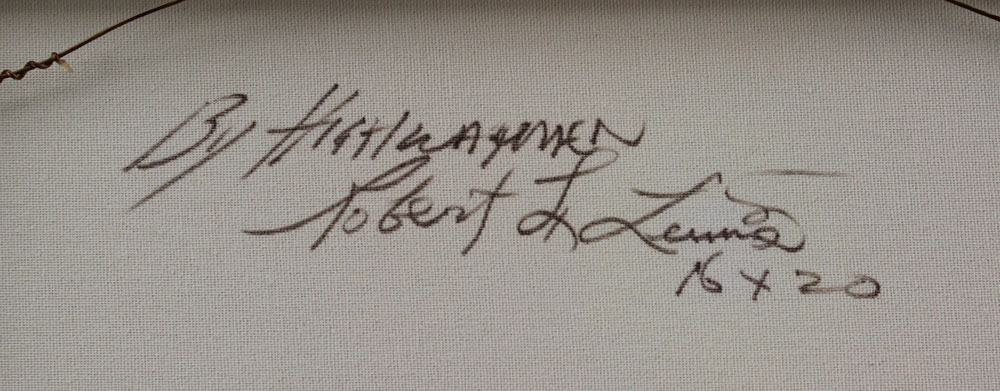 By Highwaymen
Robert L. Lewis
16 x 20